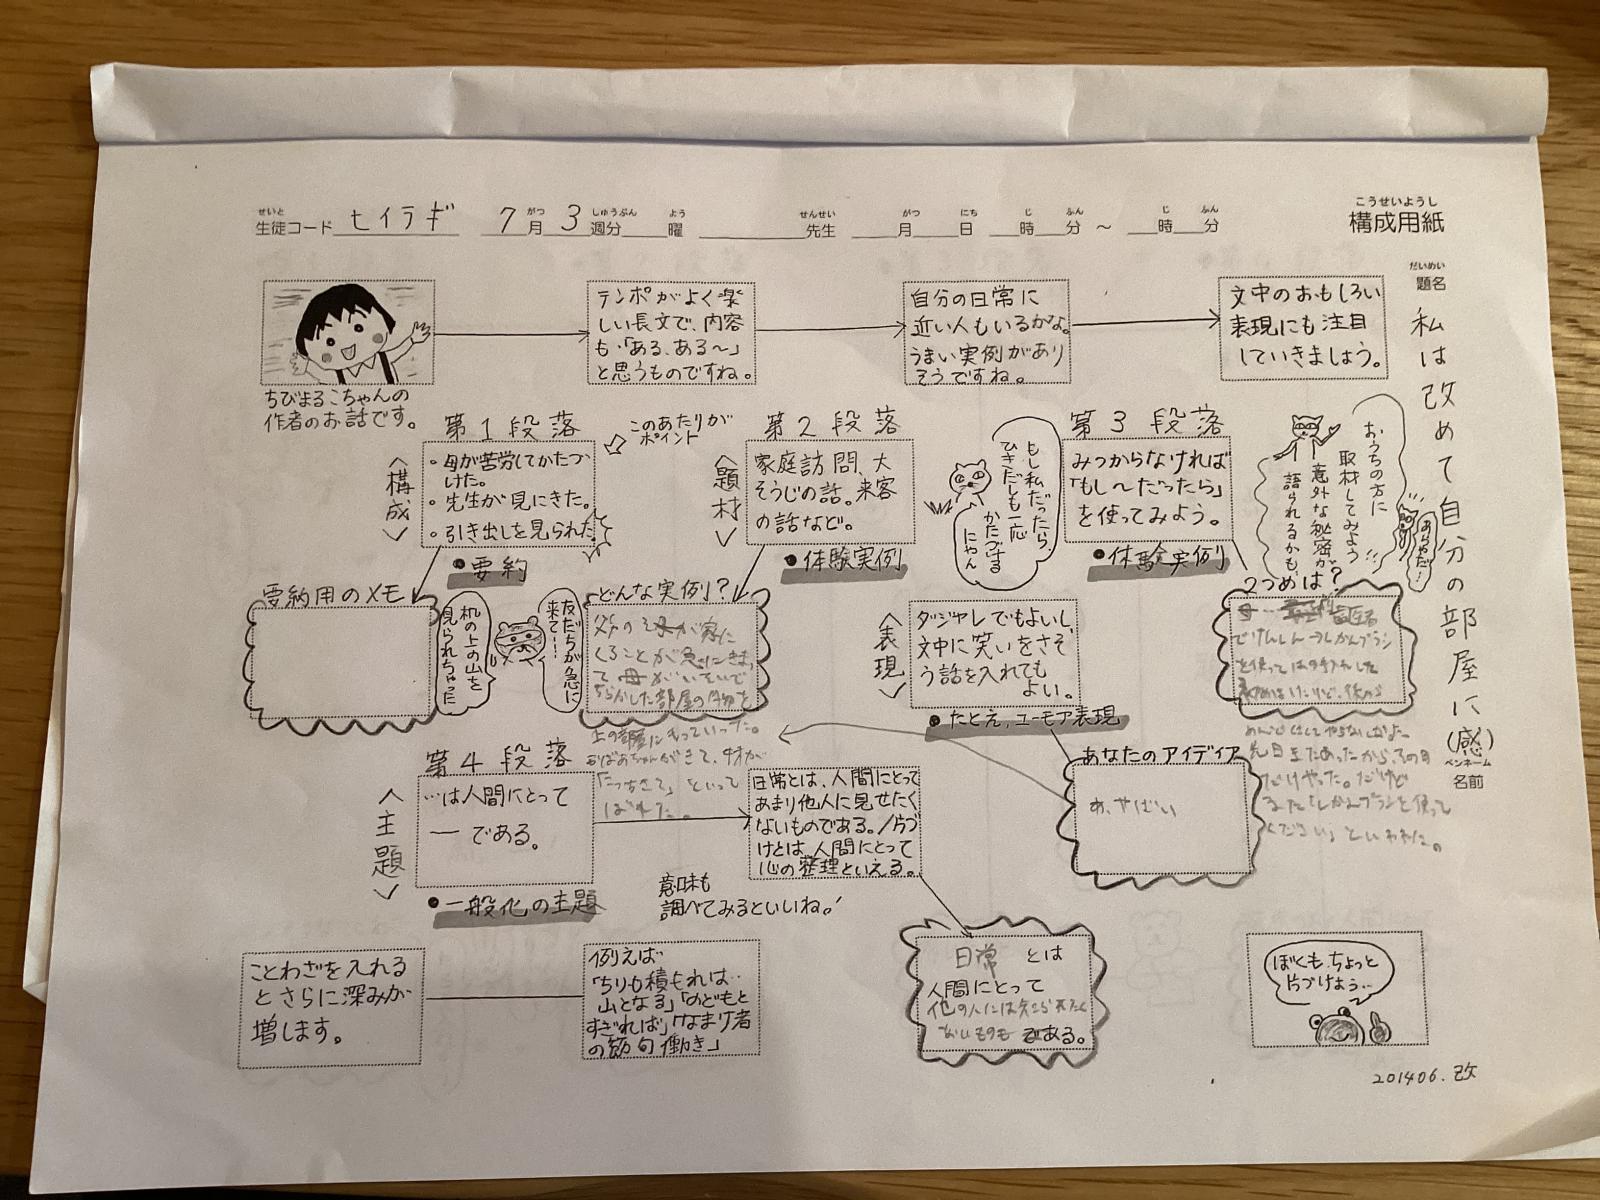 せいと がつ しゅうぶん よう せんせい がつ にち じ ふん じ ふん
生徒コード ヒイラギ 7月3週分 曜 先生 月 日 時 分 ～ 時 分
こうせいようし
構成用紙
だいめい
題名
私は改めて自分の部屋に(感)
ペンネーム
名前
ちびまるこちゃんの
作者のお話です。
テンポがよく楽
しい長文で、内容
も「ある、ある～」
と思うものですね。
自分の日常に
近い人もいるかな。
うまい実例があり
そうですね。
文中のおもしろい
表現にも注目
していきましょう。
第1段落
このあたりが
ポイント
〈構成〉
・母が苦労してかたづ
けた。
・先生が見にきた。
・引き出しを見られた。
●要約
要約用のメモ
机の上の山を
見られちゃった
友だちが急に
来て…!
第2段落
〈題材〉
家庭訪問、大
そうじの話。来客
の話など。
●体験実例
どんな実例?
父の
くることが急にきまっ
て母がいそいで
ちらかした部屋の物を
上の部屋にもっていった。
おばあちゃんがきて、
「 」といって
ばれた。
もし私だったら、
ひきだしも一応
かたづける
にゃん
第3段落
みつからなければ
「もし～だったら」
を使ってみよう。
●体験実例
おうちの方に
取材してみよう
意外な秘密が
語られるかも
ありゃだ!
2つめは?
を使って
先日 あったから、その日
だけやった。だけど
ブラシを使って
ください」といわれた。
〈表現〉
ダジャレでもよいし、
文中に笑いをさそ
う話を入れても
よい。
●たとえ、ユーモア表現
あなたのアイディア
あ、やばい
第4段落
〈主題〉
…は人間にとって
― である。
●一般化の主題
日常とは、人間にとって
あまり他人に見せたく
ないものである。/片づ
けとは、人間にとって
心の整理といえる。
意味も
調べてみるといいね。!
日常 とは
人間にとって
他の人には
ないもの である。
ことわざを入れる
とさらに深みが
増します。
例えば
「ちりも積もれば…
山となる」「のどもと
すぎれば」「なまけ者
の節句働き」
ぼくも、ちょっと
片づけよう…
201406.改